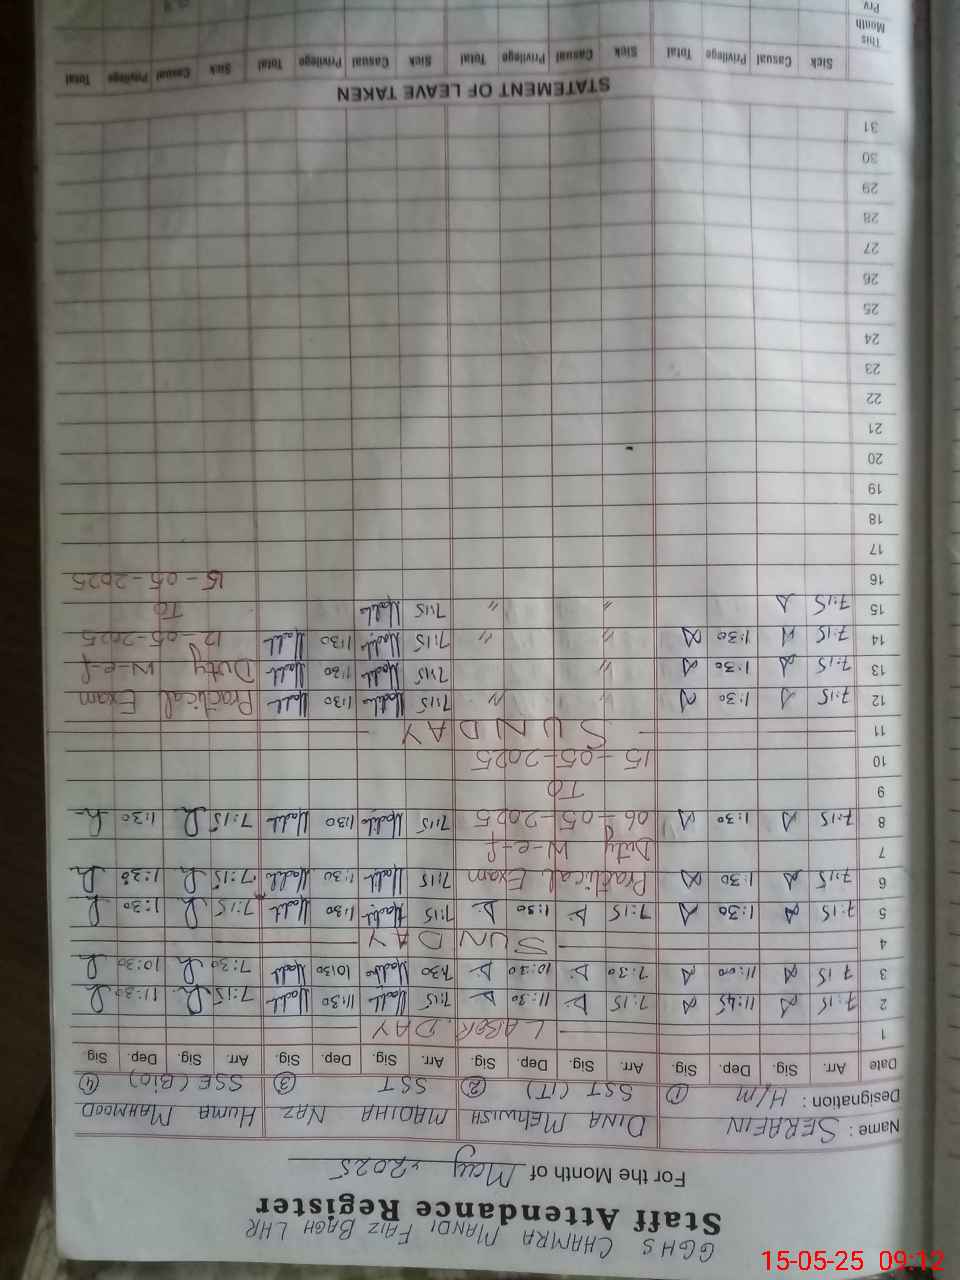 GGHS CHAMRA MANDI FAIZ BAGH LHR
Staff Attendance Register
For the Month of May, 2025
Name: SERAFIN DINA MEHWISH MADIHA NAZ HUMA MAHMOOD
Designation: H/M ① SST (IT) ② SST ③ SSE (BiO) ④
Date Arr. Sig. Dep. Sig. Arr. Sig. Dep. Sig. Arr. Sig. Dep. Sig. Arr. Sig. Dep. Sig.
1 LABOR DAY
2 7:15 11:45 7:15 11:30 7:15 11:30 7:15 11:30
3 7:15 11:00 7:30 10:30 7:30 10:30 7:30 10:30
4 SUNDAY
5 7:15 1:30 7:15 1:30 7:15 1:30 7:15 1:30
6 7:15 1:30 Practical Exam 7:15 1:30 7:15 1:30
7 Duty W-e-f
8 7:15 1:30 06-05-2025 7:15 1:30 7:15 1:30
9 TO
10 15-05-2025
11 SUNDAY
12 7:15 1:30 " " 7:15 1:30 Practical Exam
13 7:15 1:30 " 7:15 1:30 Duty W-e-f
14 7:15 1:30 " " 7:15 1:30 12-05-2025
15 7:15 " " 7:15 TO
16 15-05-2025
17
18
19
20
21
22
23
24
25
26
27
28
29
30
31
STATEMENT OF LEAVE TAKEN
Sick Casual Privilege Total Sick Casual Privilege Total Sick Casual Privilege Total Sick Casual Privilege Total
This
Month
Prv
15-05-25 09:12